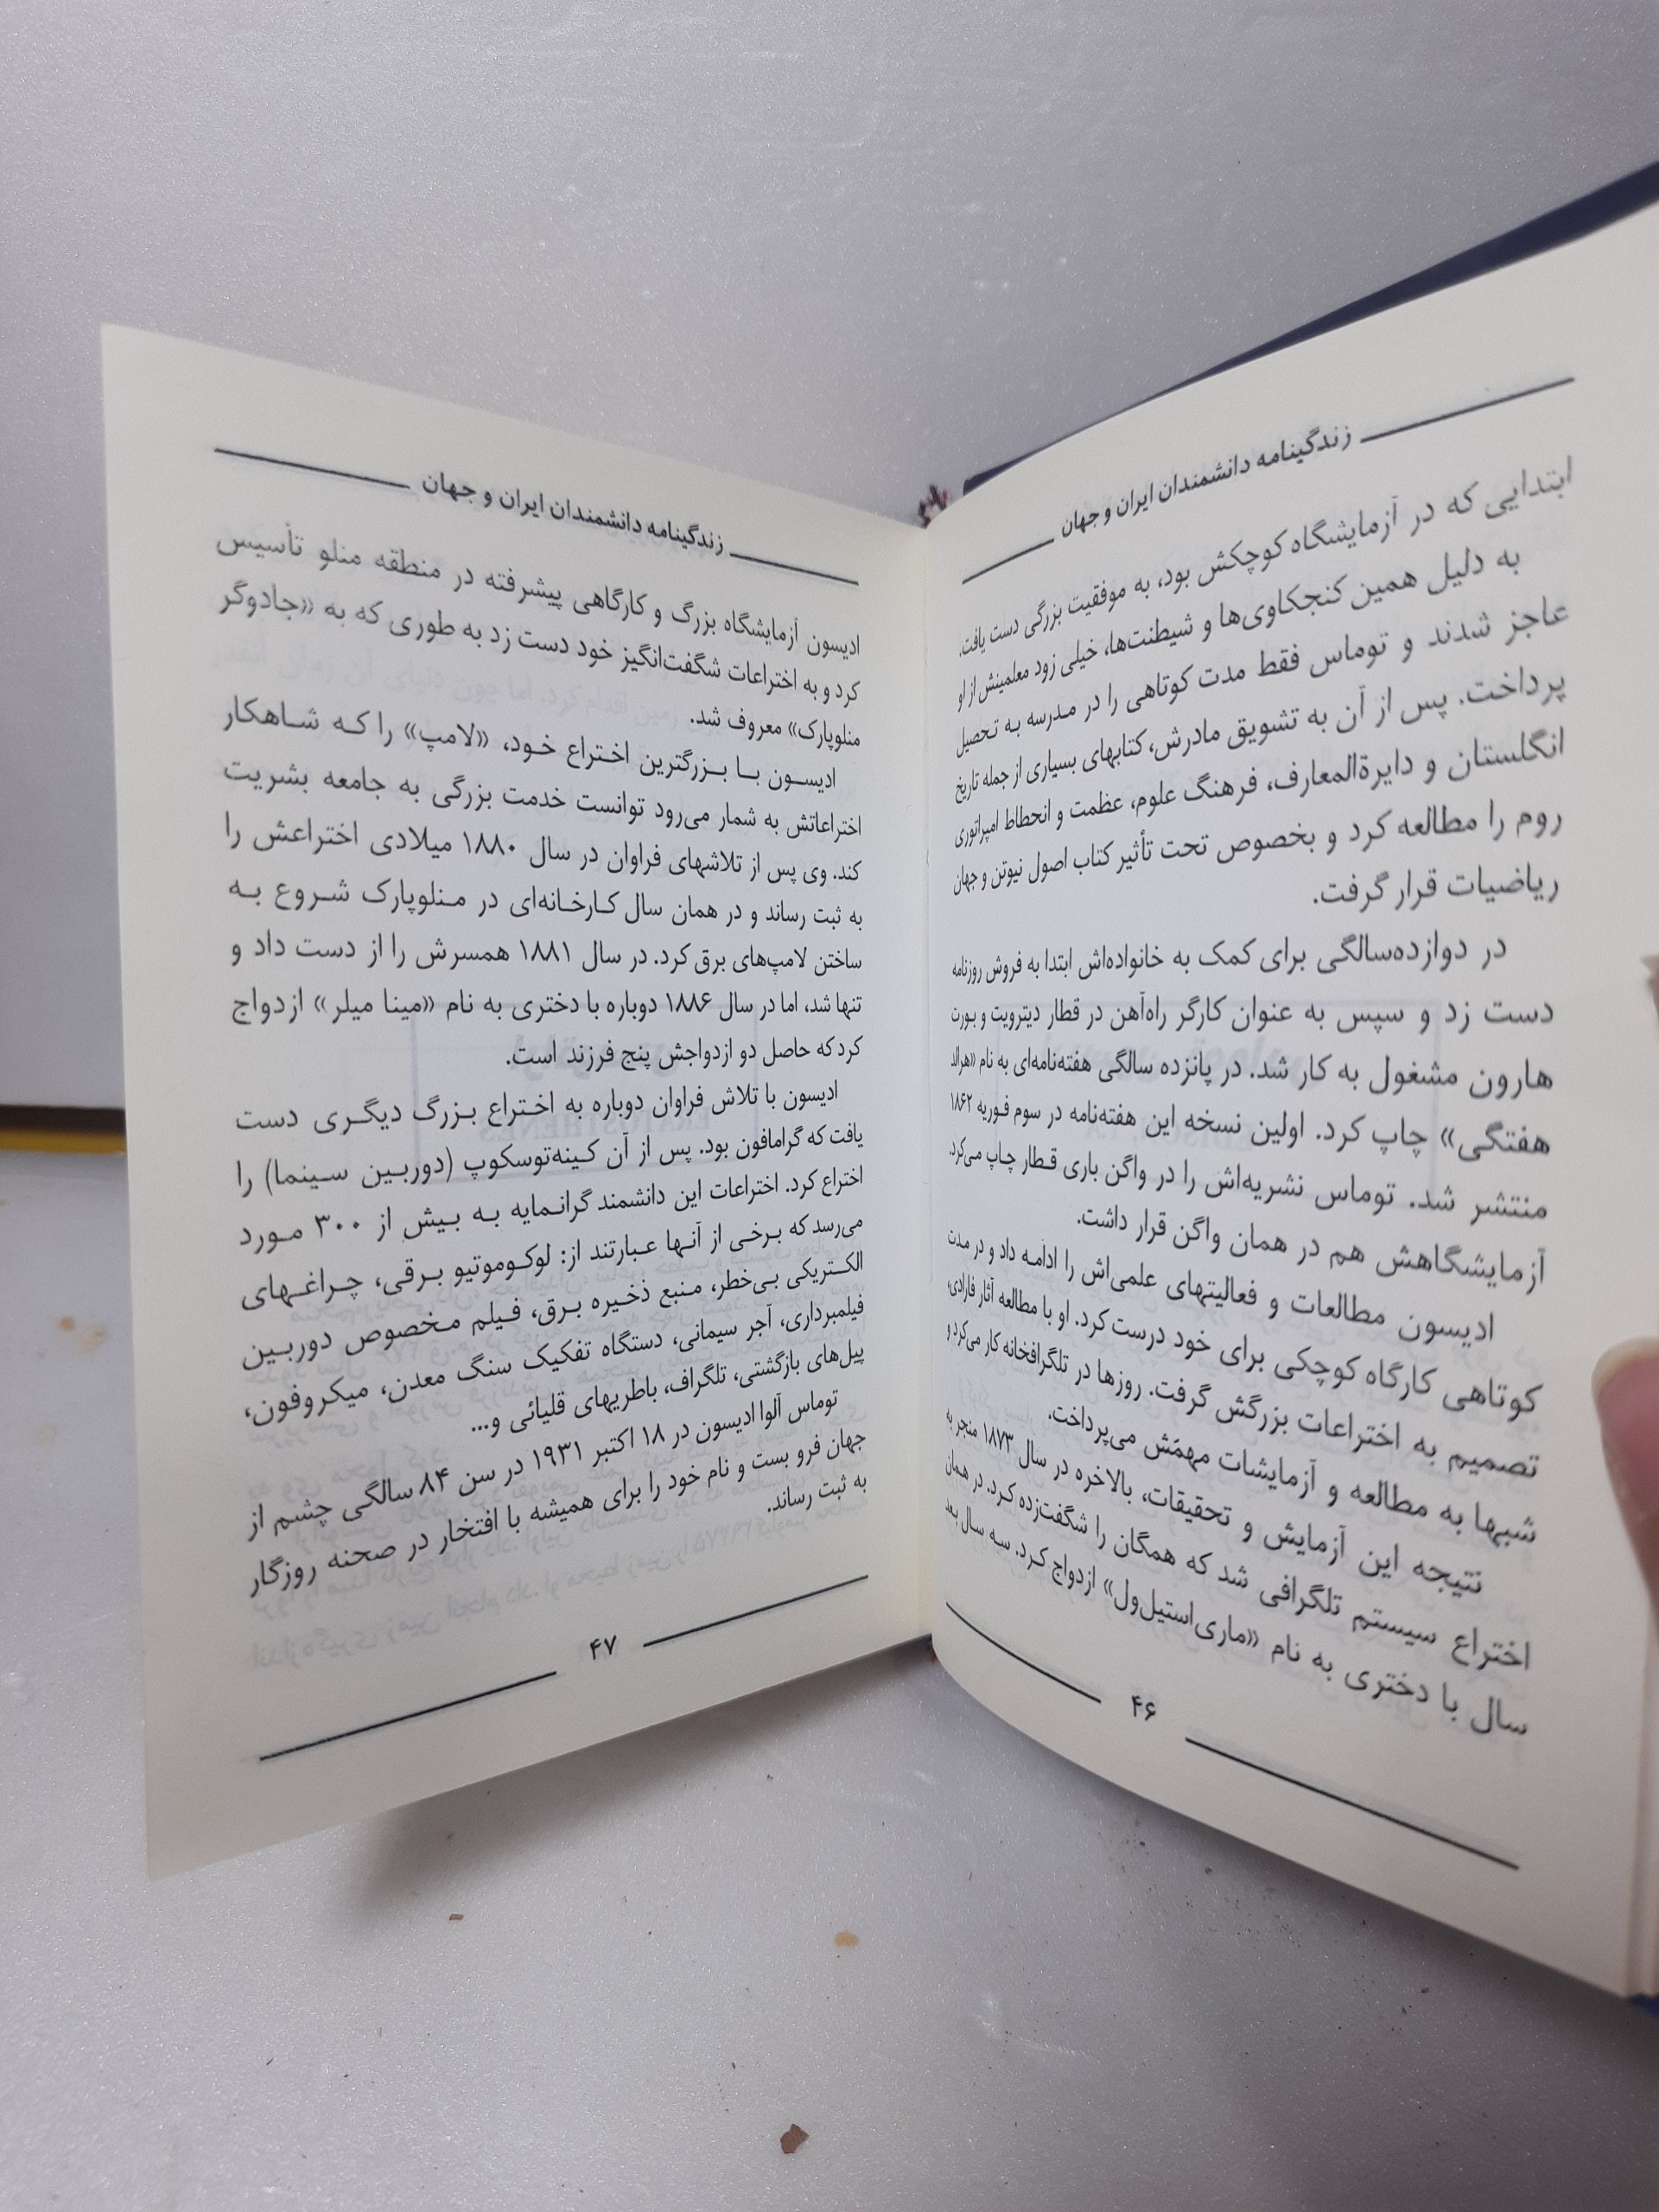 زندگینامه دانشمندان ایران و جهان
ابتدایی که در آزمایشگاه کوچکش بود، به موفقیت بزرگی دست یافت.
به دلیل همین کنجکاوی‌ها و شیطنت‌ها، خیلی زود معلمینش از او
عاجز شدند و توماس فقط مدت کوتاهی را در مدرسه به تحصیل
پرداخت. پس از آن به تشویق مادرش، کتابهای بسیاری از جمله تاریخ
انگلستان و دایرةالمعارف، فرهنگ علوم، عظمت و انحطاط امپراتوری
روم را مطالعه کرد و بخصوص تحت تأثیر کتاب اصول نیوتن و جهان
ریاضیات قرار گرفت.
در دوازده‌سالگی برای کمک به خانواده‌اش ابتدا به فروش روزنامه
دست زد و سپس به عنوان کارگر راه‌آهن در قطار دیترویت و بورت
هارون مشغول به کار شد. در پانزده سالگی هفته‌نامه‌ای به نام «هرالد
هفتگی» چاپ کرد. اولین نسخه این هفته‌نامه در سوم فوریه ۱۸۶۲
منتشر شد. توماس نشریه‌اش را در واگن باری قطار چاپ می‌کرد.
آزمایشگاهش هم در همان واگن قرار داشت.
ادیسون مطالعات و فعالیتهای علمی‌اش را ادامه داد و در مدت
کوتاهی کارگاه کوچکی برای خود درست کرد. او با مطالعه آثار فارادی،
تصمیم به اختراعات بزرگش گرفت. روزها در تلگرافخانه کار می‌کرد و
شبها به مطالعه و آزمایشات مهمّش می‌پرداخت.
نتیجه این آزمایش و تحقیقات، بالاخره در سال ۱۸۷۳ منجر به
اختراع سیستم تلگرافی شد که همگان را شگفت‌زده کرد. در همان
سال با دختری به نام «ماری‌استیل‌ول» ازدواج کرد. سه سال بعد
۴۶
زندگینامه دانشمندان ایران و جهان
ادیسون آزمایشگاه بزرگ و کارگاهی پیشرفته در منطقه منلو تأسیس
کرد و به اختراعات شگفت‌انگیز خود دست زد به طوری که به «جادوگر
منلوپارک» معروف شد.
ادیسون با بزرگترین اختراع خود، «لامپ» را که شاهکار
اختراعاتش به شمار می‌رود توانست خدمت بزرگی به جامعه بشریت
کند. وی پس از تلاشهای فراوان در سال ۱۸۸۰ میلادی اختراعش را
به ثبت رساند و در همان سال کارخانه‌ای در منلوپارک شروع به
ساختن لامپ‌های برق کرد. در سال ۱۸۸۱ همسرش را از دست داد و
تنها شد، اما در سال ۱۸۸۶ دوباره با دختری به نام «مینا میلر» ازدواج
کرد که حاصل دو ازدواجش پنج فرزند است.
ادیسون با تلاش فراوان دوباره به اختراع بزرگ دیگری دست
یافت که گرامافون بود. پس از آن کینه‌توسکوپ (دوربین سینما) را
اختراع کرد. اختراعات این دانشمند گرانمایه به بیش از ۳۰۰ مورد
می‌رسد که برخی از آنها عبارتند از: لوکوموتیو برقی، چراغهای
الکتریکی بی‌خطر، منبع ذخیره برق، فیلم مخصوص دوربین
فیلمبرداری، آجر سیمانی، دستگاه تفکیک سنگ معدن، میکروفون،
پیل‌های بازگشتی، تلگراف، باطریهای قلیائی و...
توماس آلوا ادیسون در ۱۸ اکتبر ۱۹۳۱ در سن ۸۴ سالگی چشم از
جهان فرو بست و نام خود را برای همیشه با افتخار در صحنه روزگار
به ثبت رساند.
۴۷